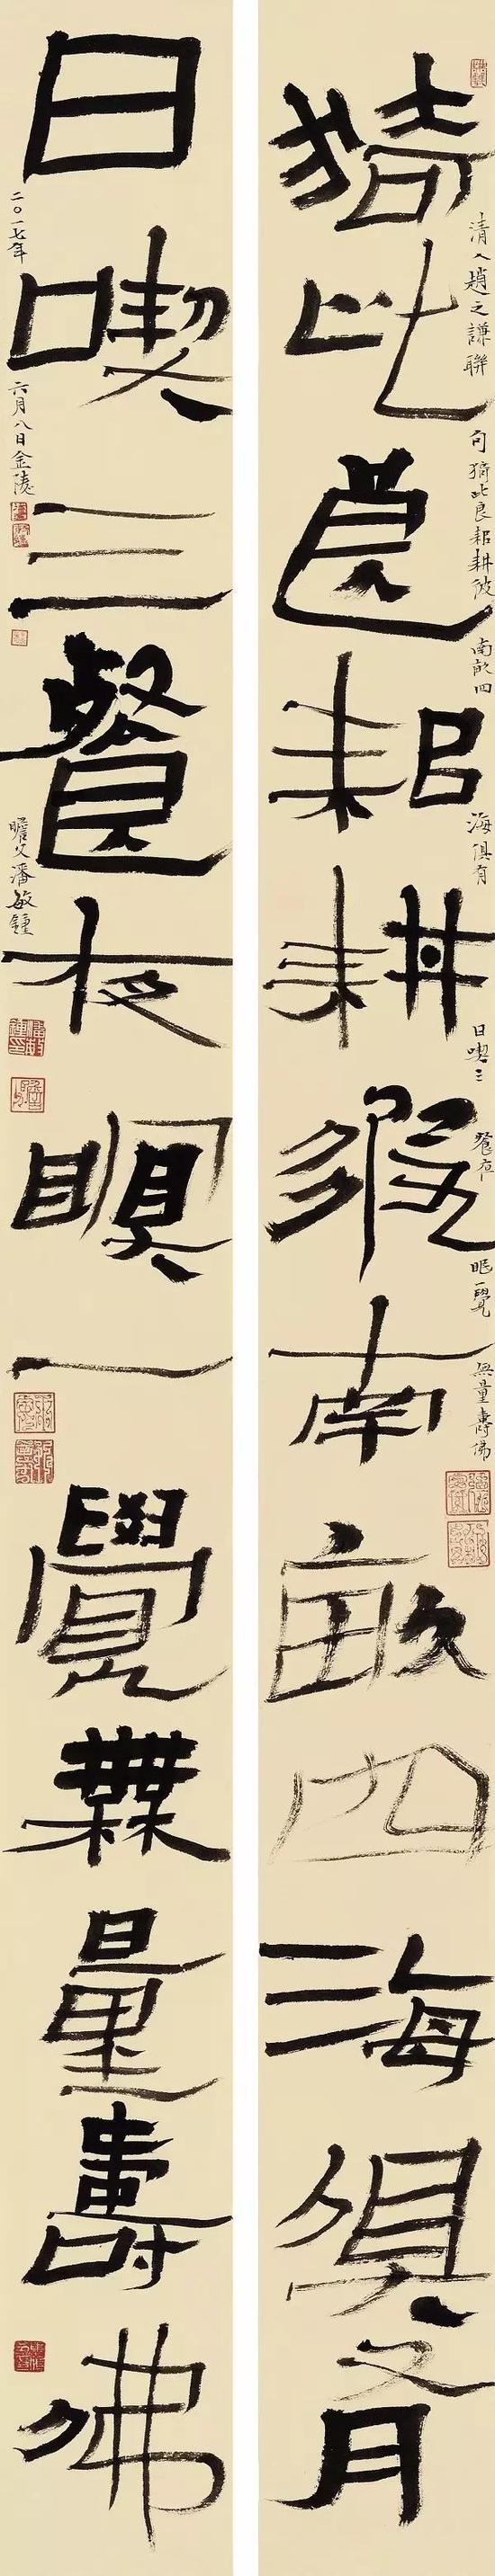 猗此良耜耕彼南畝四海俱有
清人趙之謙聯句猗此良耜耕彼南畝四海俱有日喫三餐夜眠一覺無量壽佛
日喫三餐夜瞑一覺無量壽佛
二〇一七年六月八日金陵瞻父潘敏鍾